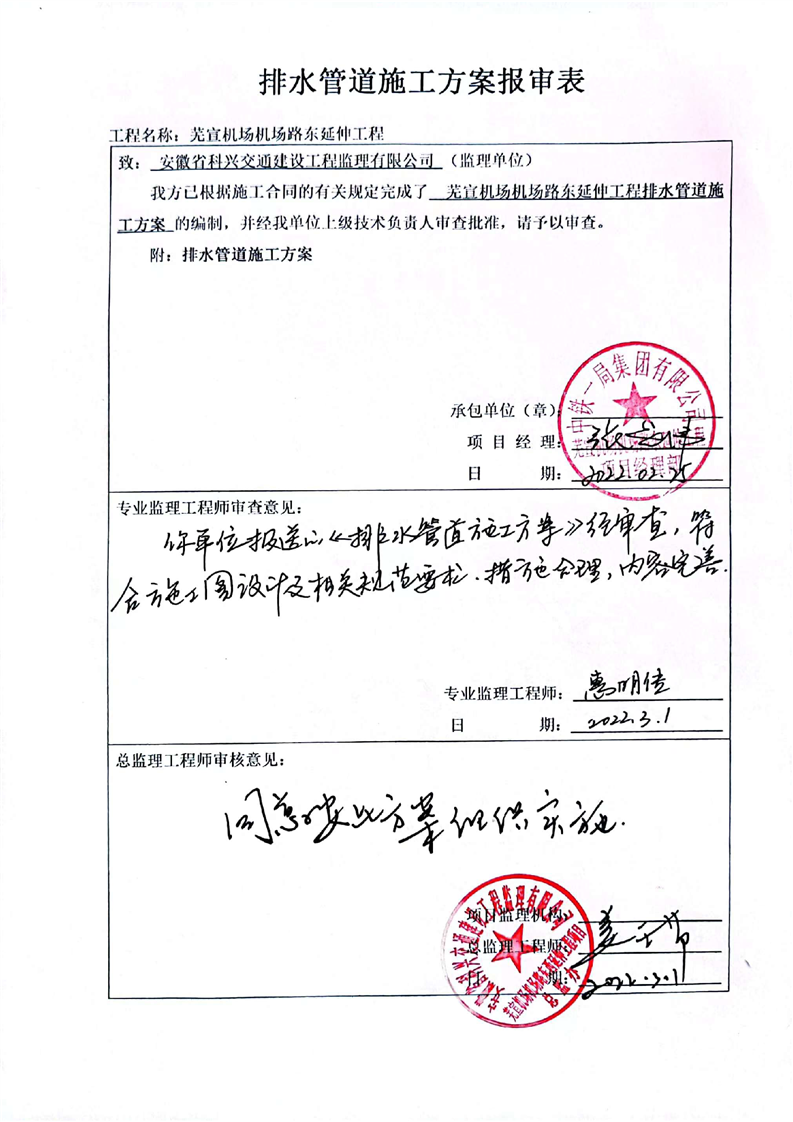 排水管道施工方案报审表
工程名称：芜宣机场机场路东延伸工程
致： 安徽省科兴交通建设工程监理有限公司 （监理单位）
我方已根据施工合同的有关规定完成了 芜宣机场机场路东延伸工程排水管道施
工方案 的编制，并经我单位上级技术负责人审查批准，请予以审查。
附：排水管道施工方案
中铁一局集团有限公司
承包单位（章）：
项 目 经 理：
项目经理部
日 期： 2022.02.25
专业监理工程师审查意见：
你单位报送的《排水管道施工方案》经审查，符
合施工图设计及相关规范要求、措施合理，内容完善.
专业监理工程师： 惠明佳
日 期： 2022.3.1
总监理工程师审核意见：
同意按此方案组织实施.
安徽省科兴交通建设工程监理有限公司
芜宣机场机场路东延伸工程项目
总监办
项目监理机构：
总监理工程师：
日 期： 2022.3.1